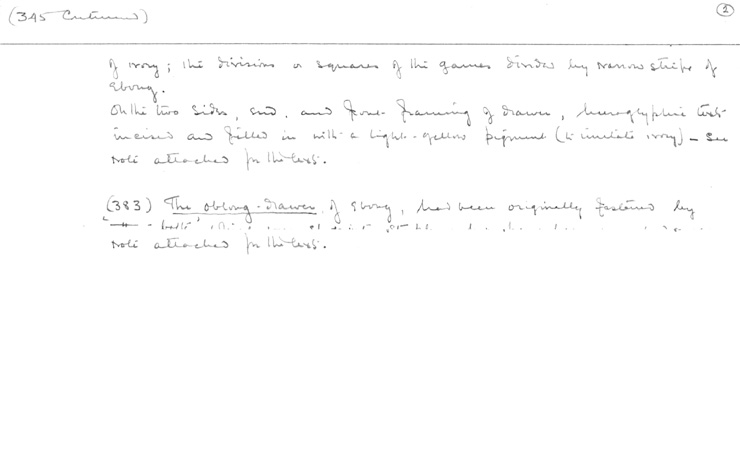 (345 Continued)
2
of ivory; the divisions or squares of the games divided by narrow strips of
Ebony.
On the two sides, end, and fore-framing of drawer, hieroglyphic text
incised and filled in with a light-yellow pigment (to imitate ivory) – see
note attached for the text.
(383) The oblong-drawer of Ebony, had been originally fastened by
note attached for the text.